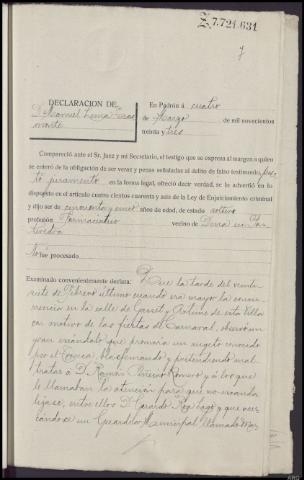 Z.7.721.631
7
DECLARACION DE
D. Manuel
En Padrón á cuatro
de Marzo de mil novecientos
treinta y tres
Compareció ante el Sr. Juez y mi Secretario, el testigo que se expresa al margen a quien
se enteró de la obligación de ser veraz y penas señaladas al delito de falso testimonio,
juramento en la forma legal, ofreció decir verdad, se le advirtió en lo
dispuesto en el artículo cuatro cientos cuarenta y seis de la Ley de Enjuiciamiento criminal
y dijo ser de cincuenta y años de edad, de estado soltero
profesión Farmacéutico vecino de
procesado.
Examinado convenientemente declara: Que la tarde del veinti
siete de Febrero último cuando era mayor la concu
rrencia en la calle de y de esta villa
con motivo de las fiestas de Carnaval, observó un
gran escándalo que promovía un sugeto conocido
por el blasfemando y pretendiendo mal
tratar a D. Ramón Romero y a los que
le llamaban la atención para que no escanda
lizase, entre ellos D. Gerardo Rey Lago y que acer
cándose un Guardia Municipal llamado